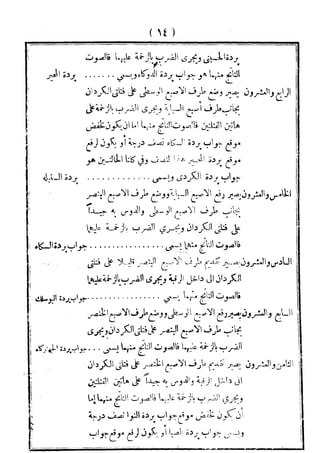 ( ١٤ )
بردة الحسيني ويجرى الضرب بالزخمة عليهما فالصوت
الناتج منهما هو جواب بردة الدوكاه ويسمى ...... بردة المحير
الرابع والعشرون يصير وضع طرف الاصبع الوسطى على فتلتى الكردان
بجانب طرف أصبع السبابة ويجرى الضرب بالزخمة على
هاتين الفتلتين فالصوت الناتج منهما اما ان يكون لخفض
موقع جواب بردة السكاه نصف درجة أو يكون لرفع
موقع بردة المحير هذا النصف وفي كلتا الحالتين هو
جواب بردة الكردى ويسمى ............ بردة السنبله
الخامس والعشرون يصير رفع الاصبع السبابة ووضع طرف الاصبع البنصر
بجانب طرف الاصبع الوسطى والدوس به جيداً
على فتلتى الكردان ويجرى الضرب بالزخمة عليهما
فالصوت الناتج منهما يسمى ............ جواب بردة السكاه
السادس والعشرون يصير تقديم طرف الاصبع البنصر قليلا على فتلتى
الكردان الى داخل الرقبة ويجرى الضرب بالزخمة عليهما
فالصوت الناتج منهما يسمى ............ جواب بردة البوسلك
السابع والعشرون يصير رفع الاصبع الوسطى ووضع طرف الاصبع الخنصر
بجانب طرف الاصبع البنصر على فتلتى الكردان ويجرى
الضرب بالزخمة عليهما فالصوت الناتج منهما يسمى ... جواب بردة الجهاركاه
الثامن والعشرون يصير تقديم طرف الاصبع الخنصر على فتلتى الكردان
الى داخل الرقبة والدوس به جيداً على هاتين الفتلتين
ويجرى الضرب بالزخمة عليهما فالصوت الناتج منهما إما
أن يكون لخفض موقع جواب بردة النوا نصف درجة
ويسمى جواب بردة الصبا أو يكون لرفع موقع جواب